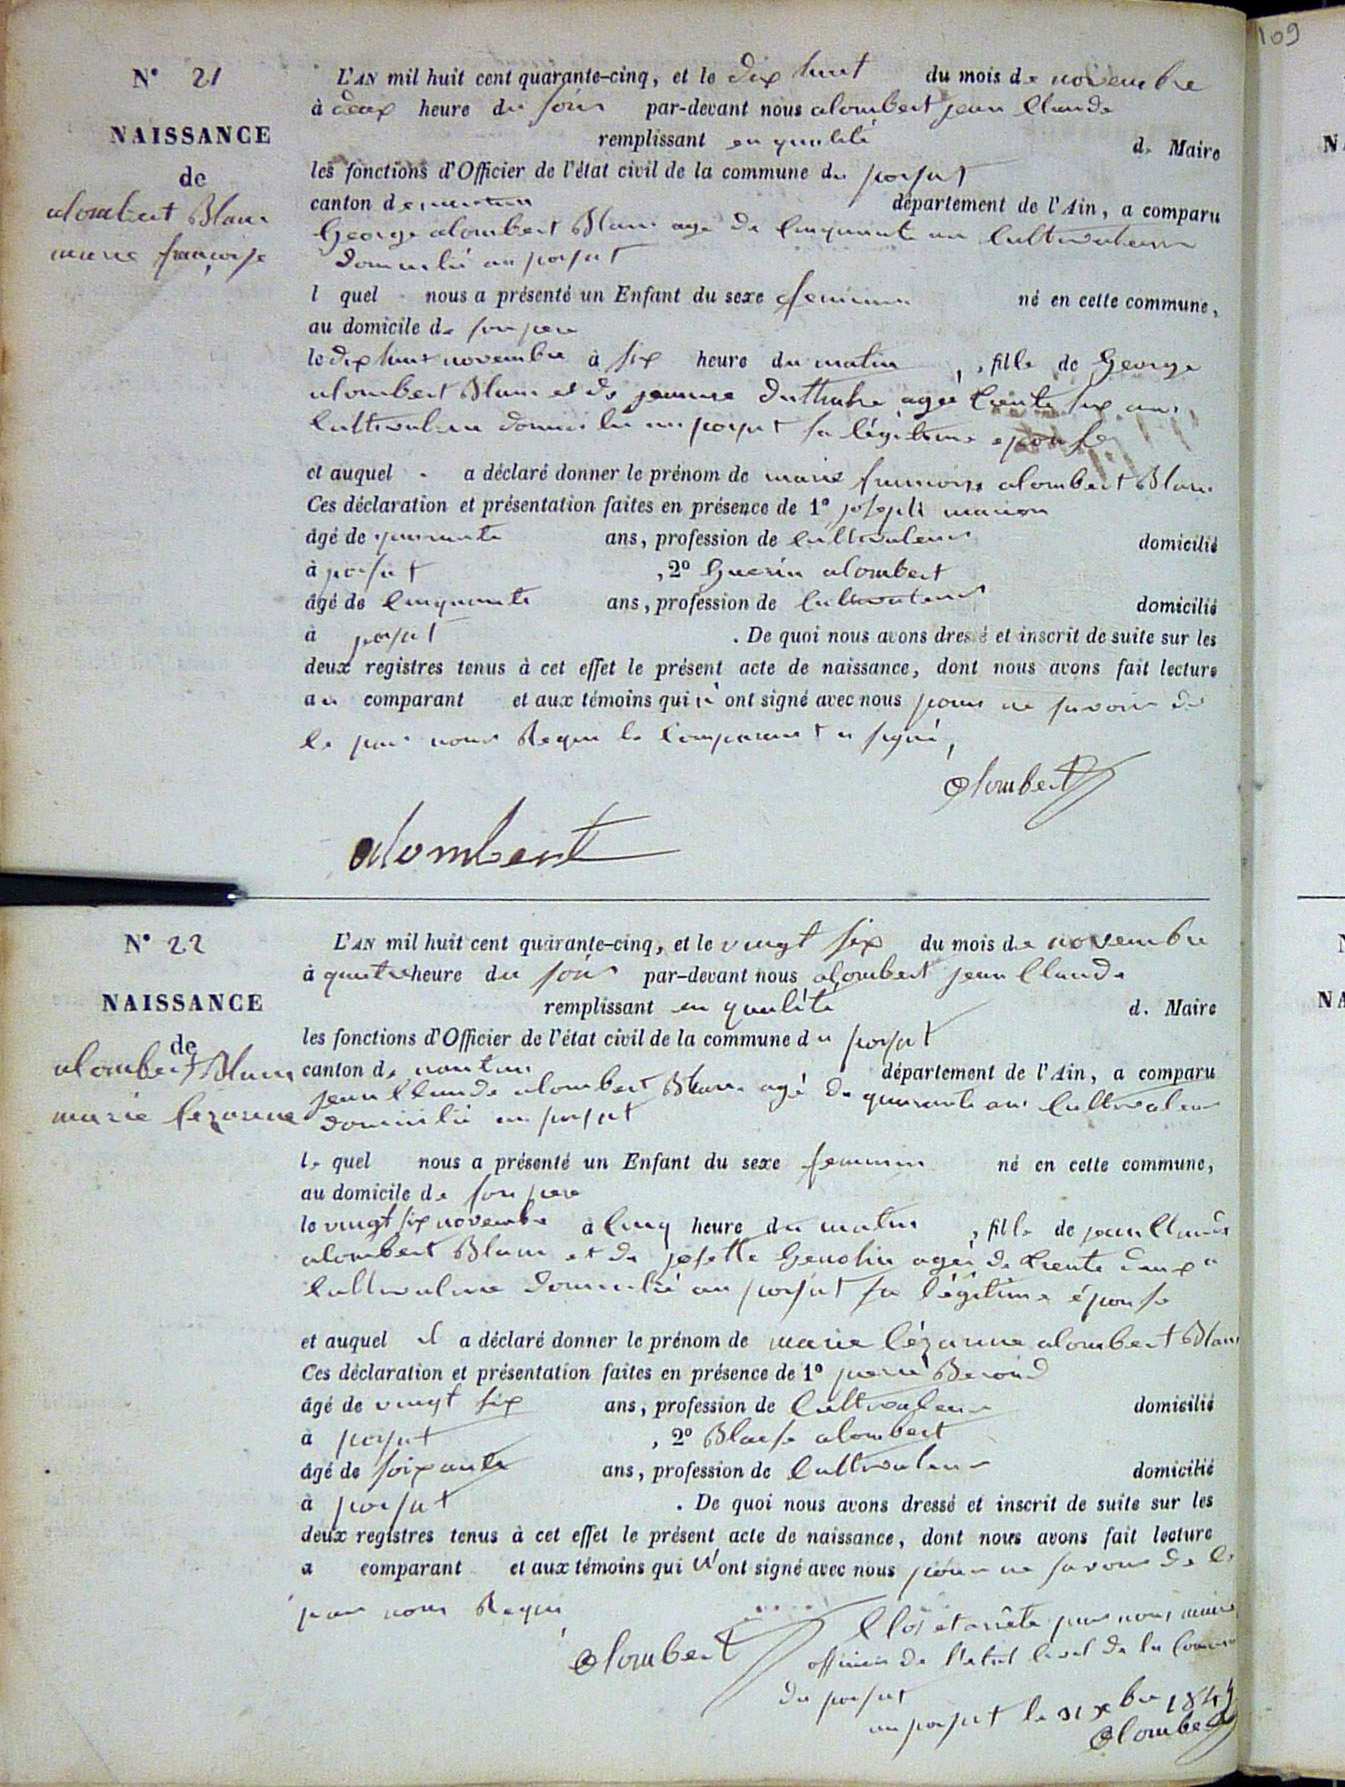 109
N° 21
NAISSANCE
de
alombert Blanc
marie françoise
L'AN mil huit cent quarante-cinq, et le dix huit du mois de novembre
à deux heure du soir par-devant nous alombert jean Claude
remplissant en qualité de Maire
les fonctions d'Officier de l'état civil de la commune du poisat
canton de nantua département de l'Ain, a comparu
George alombert Blanc agé de Cinquante un Cultivateur
domicilié au poisat
l quel nous a présenté un Enfant du sexe feminin né en cette commune,
au domicile de son pere
le dix huit novembre à six heure du matin, fille de George
alombert Blanc et de jeanne agée trente six ans
Cultivatrice domicilié au poisat sa légitime epouse
et auquel a déclaré donner le prénom de marie francoise alombert Blanc
Ces déclaration et présentation faites en présence de 1° joseph
âgé de quarante ans, profession de Cultivateur domicilié
à poisat, 2° Guerin alombert
âgé de Cinquante ans, profession de Cultivateur domicilié
à poisat. De quoi nous avons dressé et inscrit de suite sur les
deux registres tenus à cet effet le présent acte de naissance, dont nous avons fait lecture
au comparant et aux témoins qui n'ont signé avec nous pour ne savoir de
le par nous Requi le Comparant a signé,
alombert
alombert
N° 22
NAISSANCE
de
alombert Blanc
marie Cézarine
L'AN mil huit cent quarante-cinq, et le vingt six du mois de novembre
à quatre heure du soir par-devant nous alombert jean Claude
remplissant en qualité d. Maire
les fonctions d'Officier de l'état civil de la commune du poisat
canton de nantua département de l'Ain, a comparu
jean Claude alombert Blanc agé de quarante ans Cultivateur
domicilié au poisat
le quel nous a présenté un Enfant du sexe feminin né en cette commune,
au domicile de son pere
le vingt six novembre à Cinq heure du matin, fille de jean Claude
alombert Blanc et de josette agée de trente deux
Cultivatrice domicilié au poisat sa légitime épouse
et auquel il a déclaré donner le prénom de marie Cézarine alombert Blanc
Ces déclaration et présentation faites en présence de 1°
âgé de vingt six ans, profession de Cultivateur domicilié
à poisat, 2° Blaise alombert
âgé de soixante ans, profession de Cultivateur domicilié
à poisat. De quoi nous avons dressé et inscrit de suite sur les
deux registres tenus à cet effet le présent acte de naissance, dont nous avons fait lecture
a comparant et aux témoins qui n'ont signé avec nous pour ne savoir de le
par nous Requi
alombert
Clos et arrêté par nous maire
officier de l'état civil de la Commune
du poisat
au poisat le 31 xbre 1845
alombert